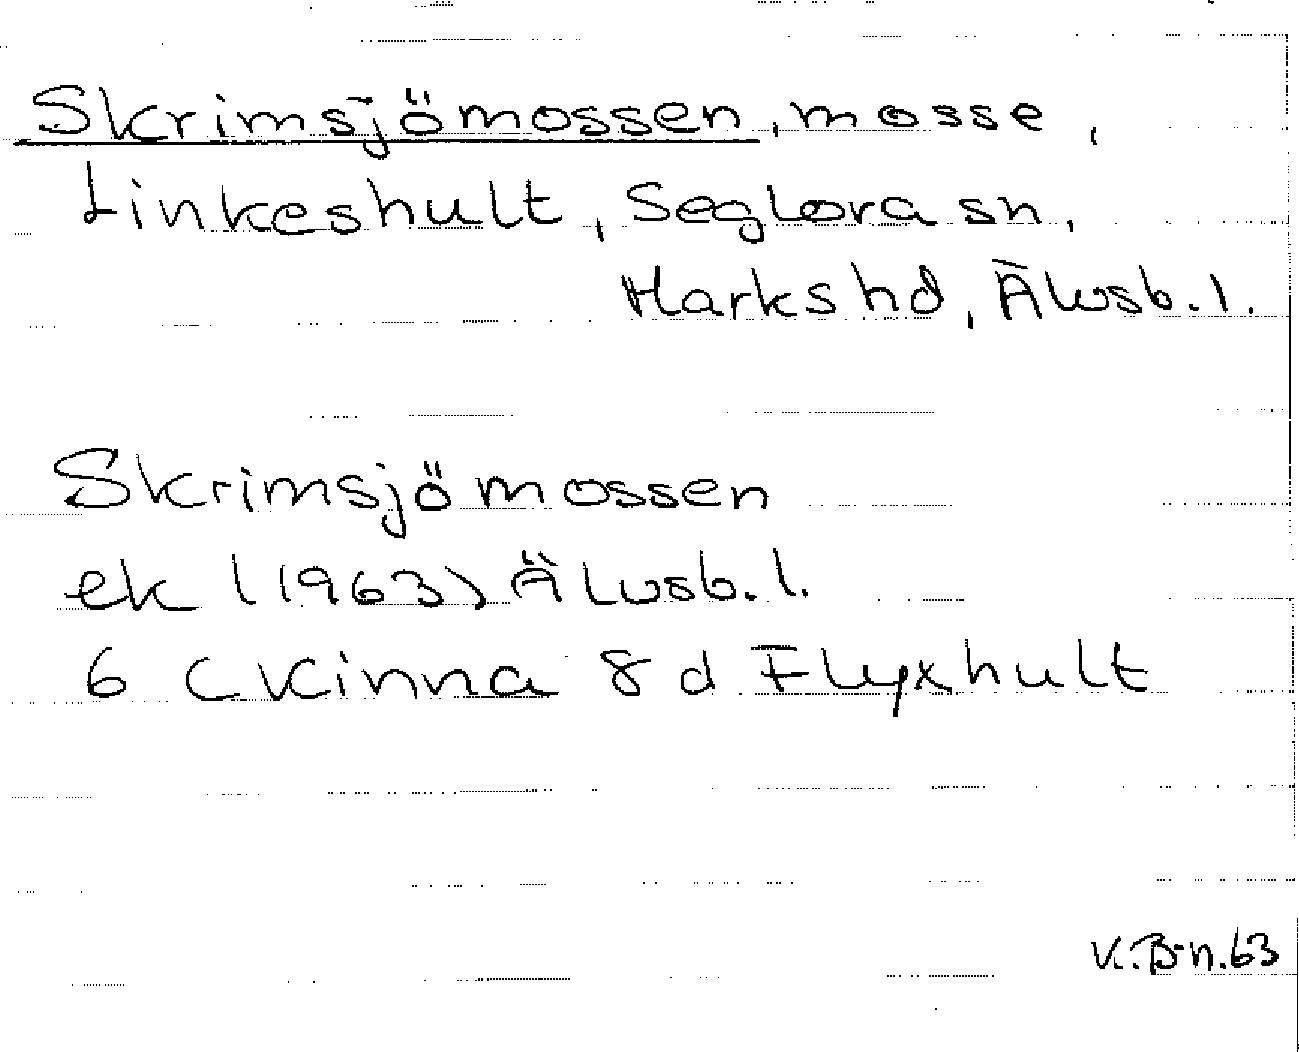 Skrimsjömossen, mosse,
Linkeshult, Seglora sn,
Marks hd, Älvsb. l.
Skrimsjömossen
ek (1963) Älvsb. l.
6 C Kinna 8 d Flyxhult
V. B-n. 63